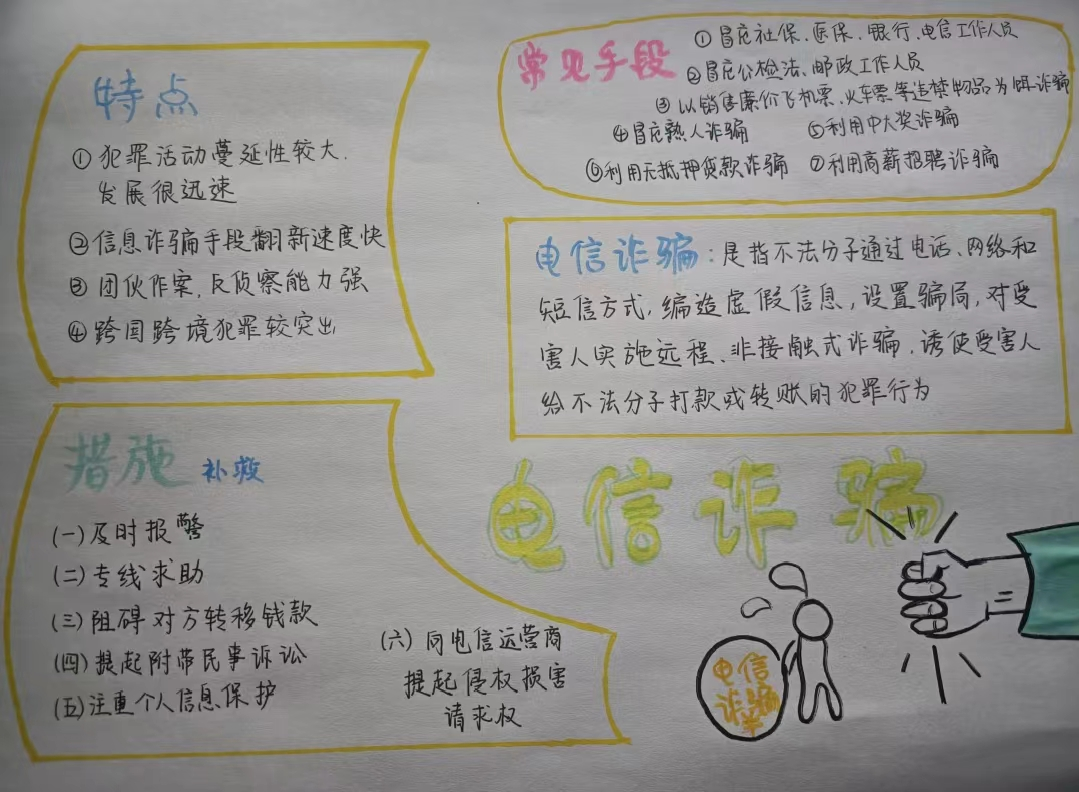 特点
① 犯罪活动蔓延性较大.
发展很迅速
②信息诈骗手段翻新速度快
③ 团伙作案,反侦察能力强
④ 跨国跨境犯罪较突出
常见手段
① 冒充社保、医保、银行、电信工作人员
②冒充公检法、邮政工作人员
③ 以销售廉价飞机票、火车票等违禁物品为饵诈骗
④冒充熟人诈骗 ⑤利用中大奖诈骗
⑥利用无抵押贷款诈骗 ⑦利用高薪招聘诈骗
电信诈骗:是指不法分子通过电话、网络和
短信方式,编造虚假信息,设置骗局,对受
害人实施远程、非接触式诈骗,诱使受害人
给不法分子打款或转账的犯罪行为
措施 补救
(一)及时报警
(二)专线求助
(三)阻碍对方转移钱款
(四)提起附带民事诉讼
(五)注重个人信息保护
(六)向电信运营商
提起侵权损害
请求权
电信诈骗
电信
诈骗